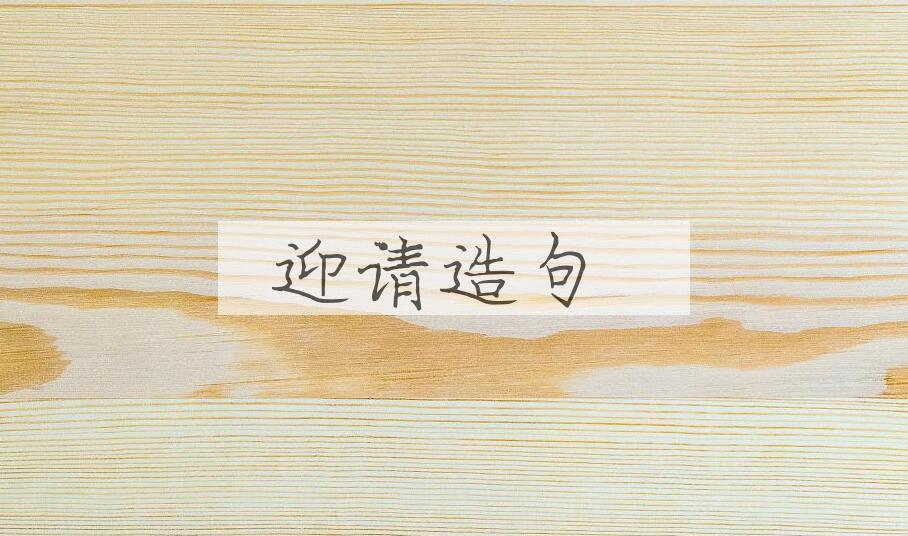 迎请造句